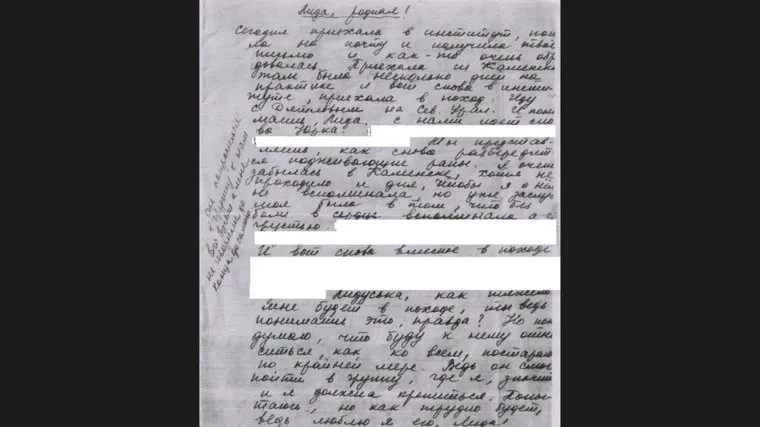 Лида, родная!
Сегодня приехала в институт, пош
ла на почту и получила твое
письмо и как-то очень обра
довалась. Приехала из Каменска
там была несколько дней на
практике и вот снова в инсти
туте, приехала в поход. Иду
с Дятловым на Сев. Урал. И пони
маешь, Лида, с нами идет сно
ва Юрка.
Ты представ
ляешь, как снова разбередят
ся подживающие раны. Я очень
забылась в Каменске, хотя не
проходило и дня, чтобы я о нём
не вспоминала но уже заслуга
моя была в том, что без
боли в сердце вспоминала а с
грустью.
И вот снова вместе в походе
Лидуська, как тяжело
мне будет в походе, ты ведь
понимаешь это, правда? Но я
думаю, что буду к нему отно
ситься, как ко всем, постараюсь
по крайней мере. Ведь он смог
пойти в группу, где я, значит
и я должна крепиться. Попы
таюсь, но как трудно будет,
ведь люблю я его, Лида!
он согласился
в группу к нам
всё время а мне
не говорили до
конца до самого